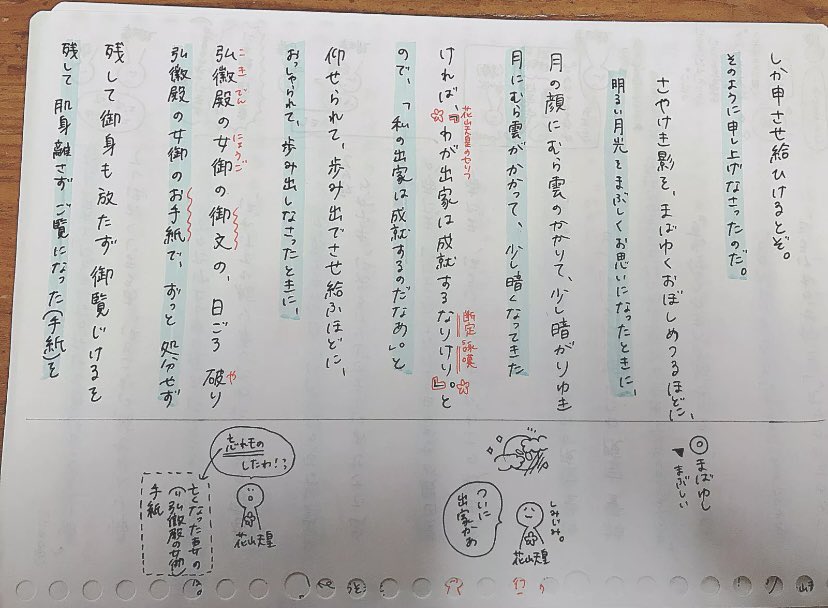 しか申させ給ひけるとぞ。
そのように申し上げなさったのだ。
さやけき影を、まばゆくおぼしめつるほどに、
明るい月光をまぶしくお思いになったときに、
月の顔にむら雲のかかりて、少し暗がりゆき
月にむら雲がかかって、少し暗くなってきた
花山天皇のセリフ
ければ、「わが出家は成就するなりけり。」と
断定 詠嘆
ので、「私の出家は成就するのだなぁ。」と
仰せられて、歩み出でさせ給ふほどに、
おっしゃられて、歩み出しなさったときに、
こきでん にょうご
弘徽殿の女御の御文の、日ごろ破り
や
弘徽殿の女御のお手紙で、ずっと処分せず
残して御身も放たず御覧じけるを
残して肌身離さずご覧になった(手紙)を
◎まばゆし
▼まぶしい
しみじみ。
花山天皇
ついに
出家かぁ
忘れもの
したわ!
花山天皇
亡くなった妻の
(弘徽殿の女御)
手紙